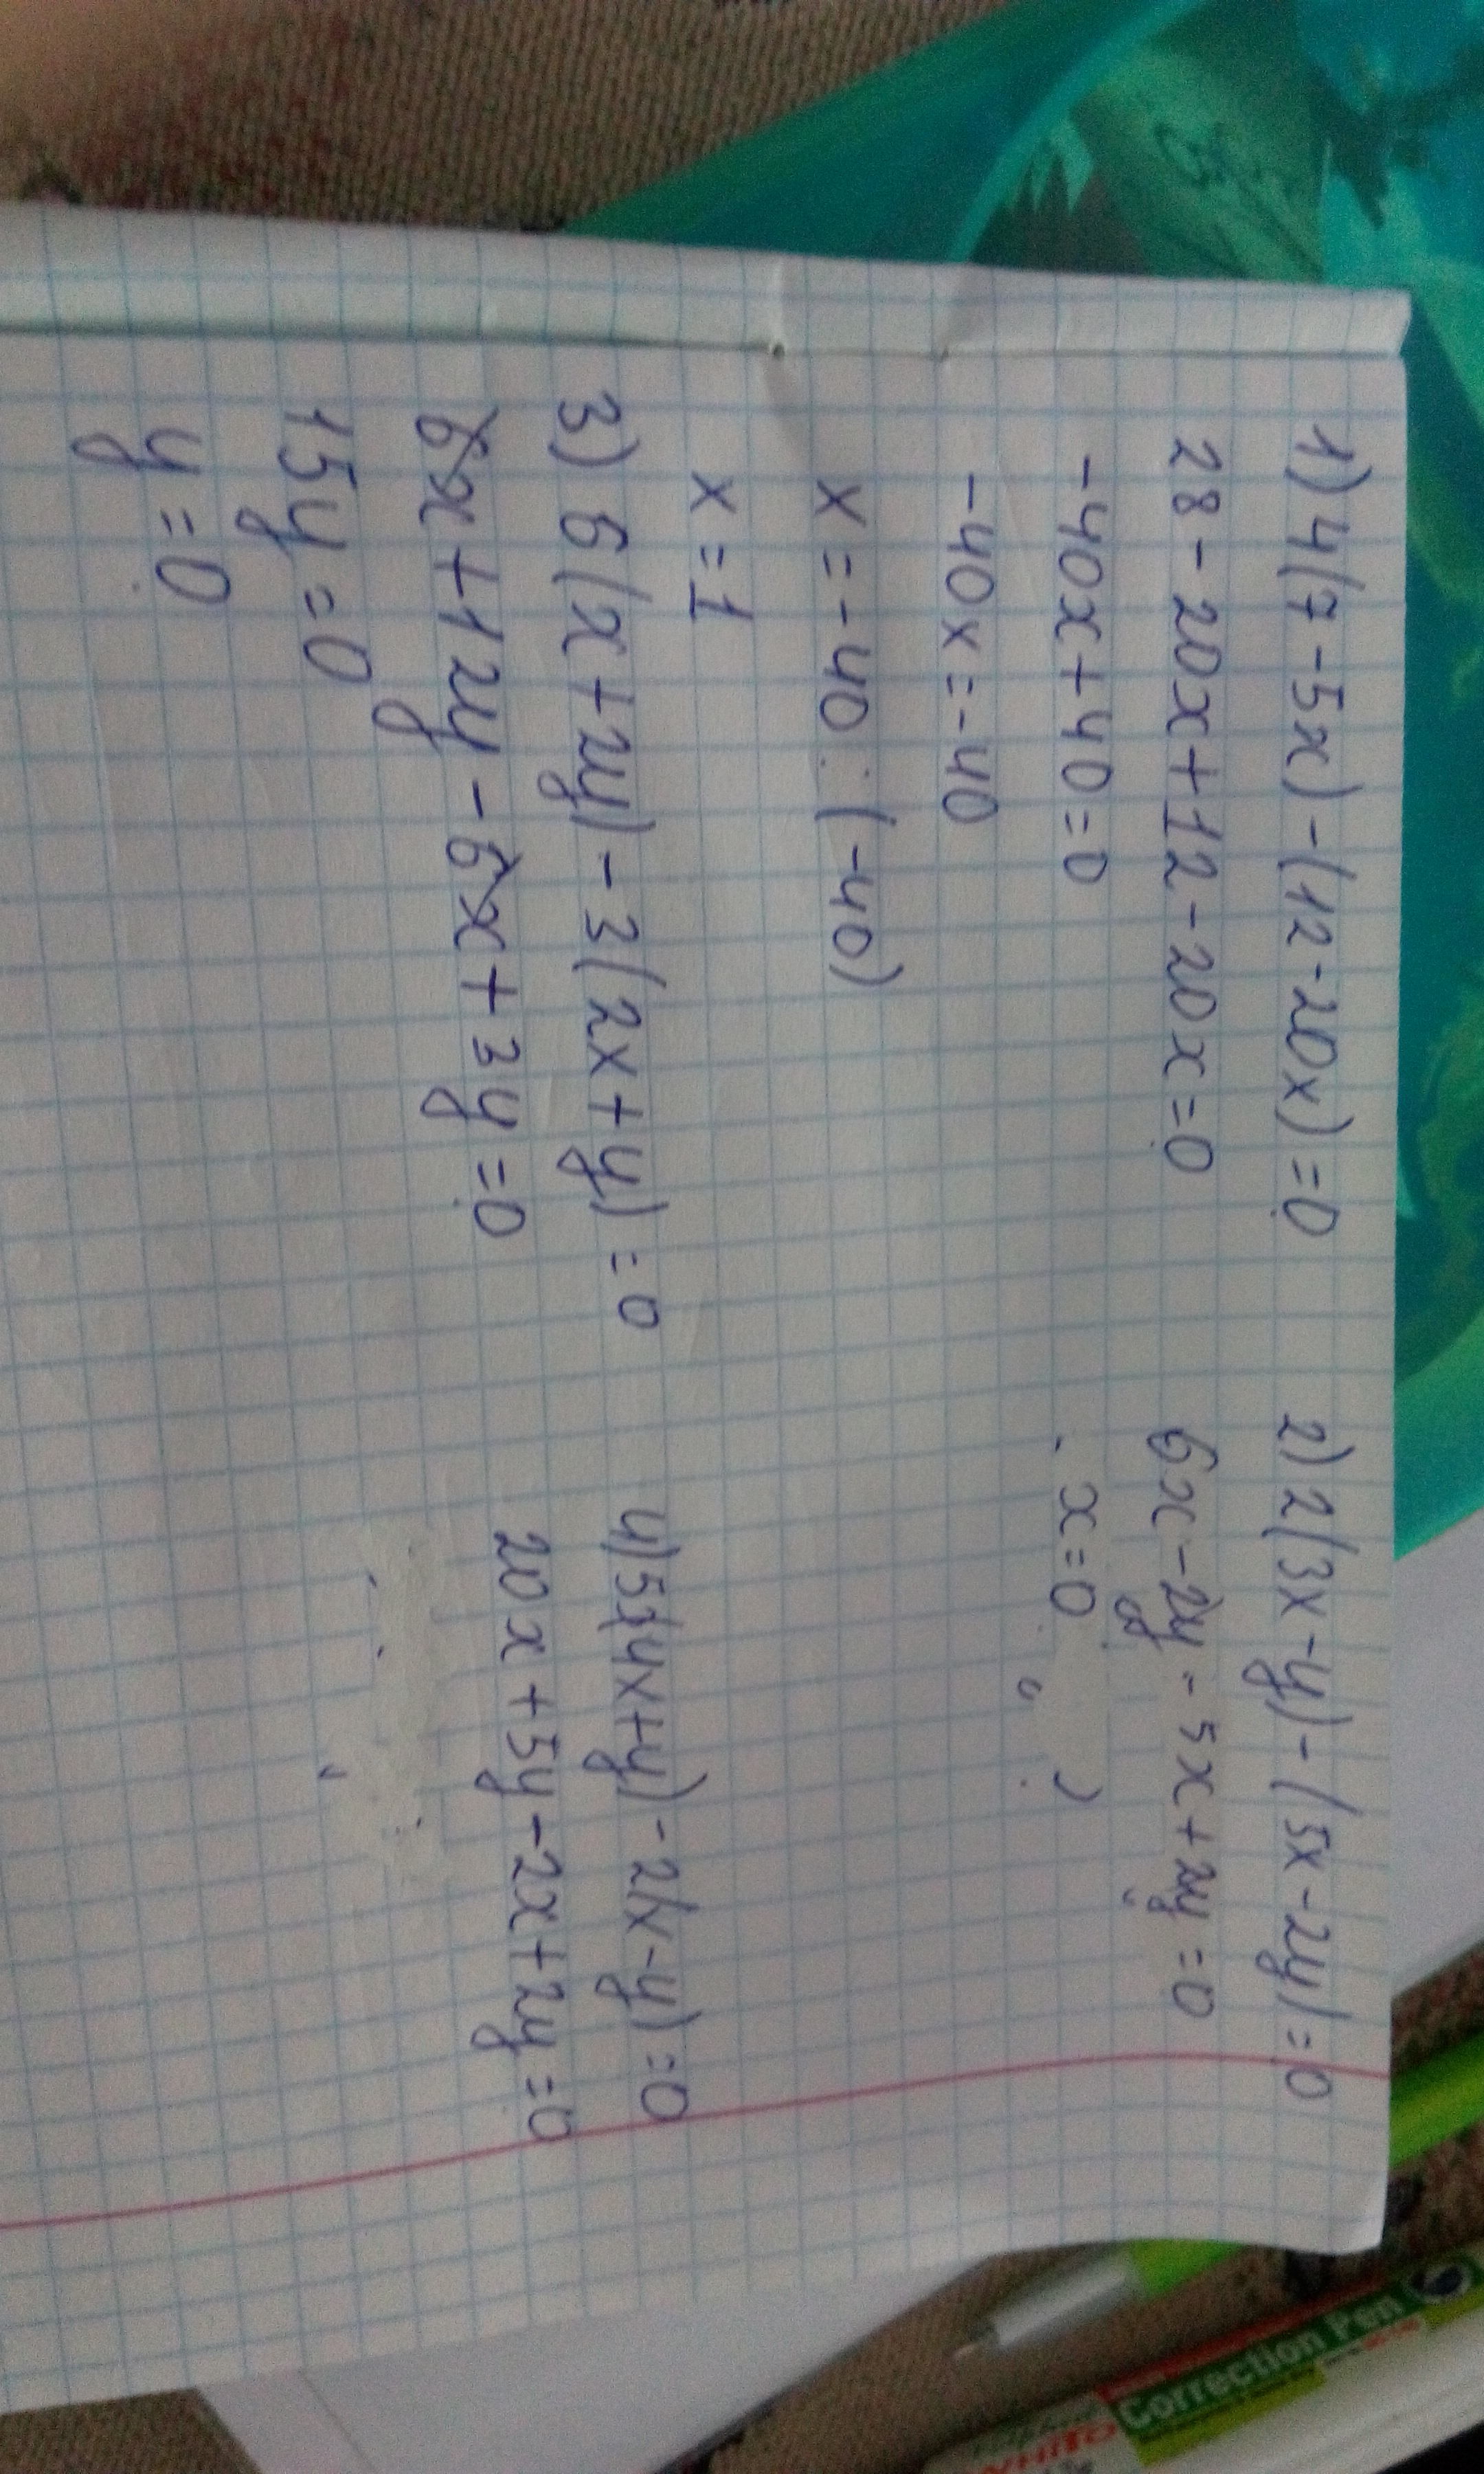 1) 4(7-5x)-(12-20x)=0
28-20x+12-20x=0
-40x+40=0
-40x=-40
x=-40:(-40)
x=1
2) 2(3x-y)-(5x-2y)=0
6x-2y-5x+2y=0
x=0
3) 6(x+2y)-3(2x+y)=0
6x+12y-6x+3y=0
15y=0
y=0
4) 5(4x+y)-2(x-y)=0
20x+5y-2x+2y=0
Correction Pen